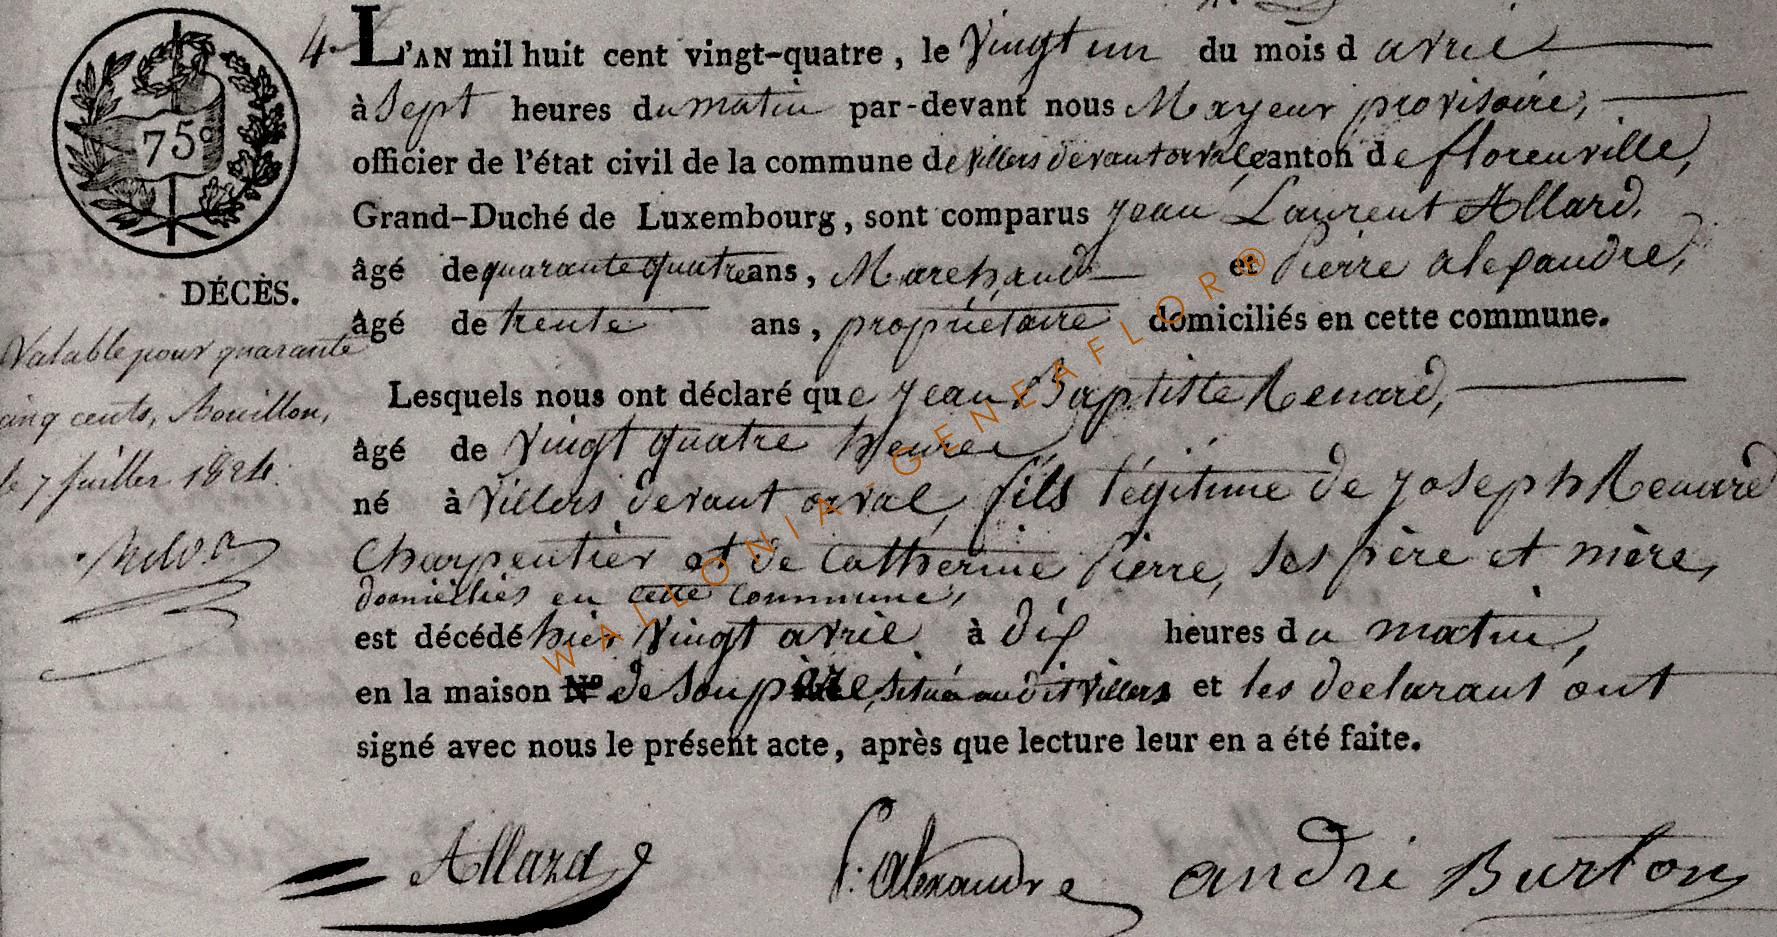 75c
DÉCÈS.
Valable pour quarante
cinq cents, Bouillon,
le 7 Juillet 1824.
4. L'AN mil huit cent vingt-quatre, le Vingt un du mois d avril
à Sept heures du matin par-devant nous Mayeur provisoire,
officier de l'état civil de la commune de villers devant orval, canton de florenville,
Grand-Duché de Luxembourg, sont comparus jean Laurent Allard,
âgé de quarante quatre ans, Marchand et Pierre alexandre,
âgé de trente ans, propriétaire domiciliés en cette commune.
Lesquels nous ont déclaré que jean Baptiste Renard,
âgé de vingt quatre heures
né à Villers devant orval, fils légitime de joseph Renard
Charpentier et de Catherine Pierre, ses père et mère,
domiciliés en cette commune,
est décédé hier vingt avril à dix heures du matin,
en la maison N° de Son père, situé au dit Villers et les declarant ont
signé avec nous le présent acte, après que lecture leur en a été faite.
Allard P. Alexandre andré Burton
WALLONIA-GENEAFLOR®